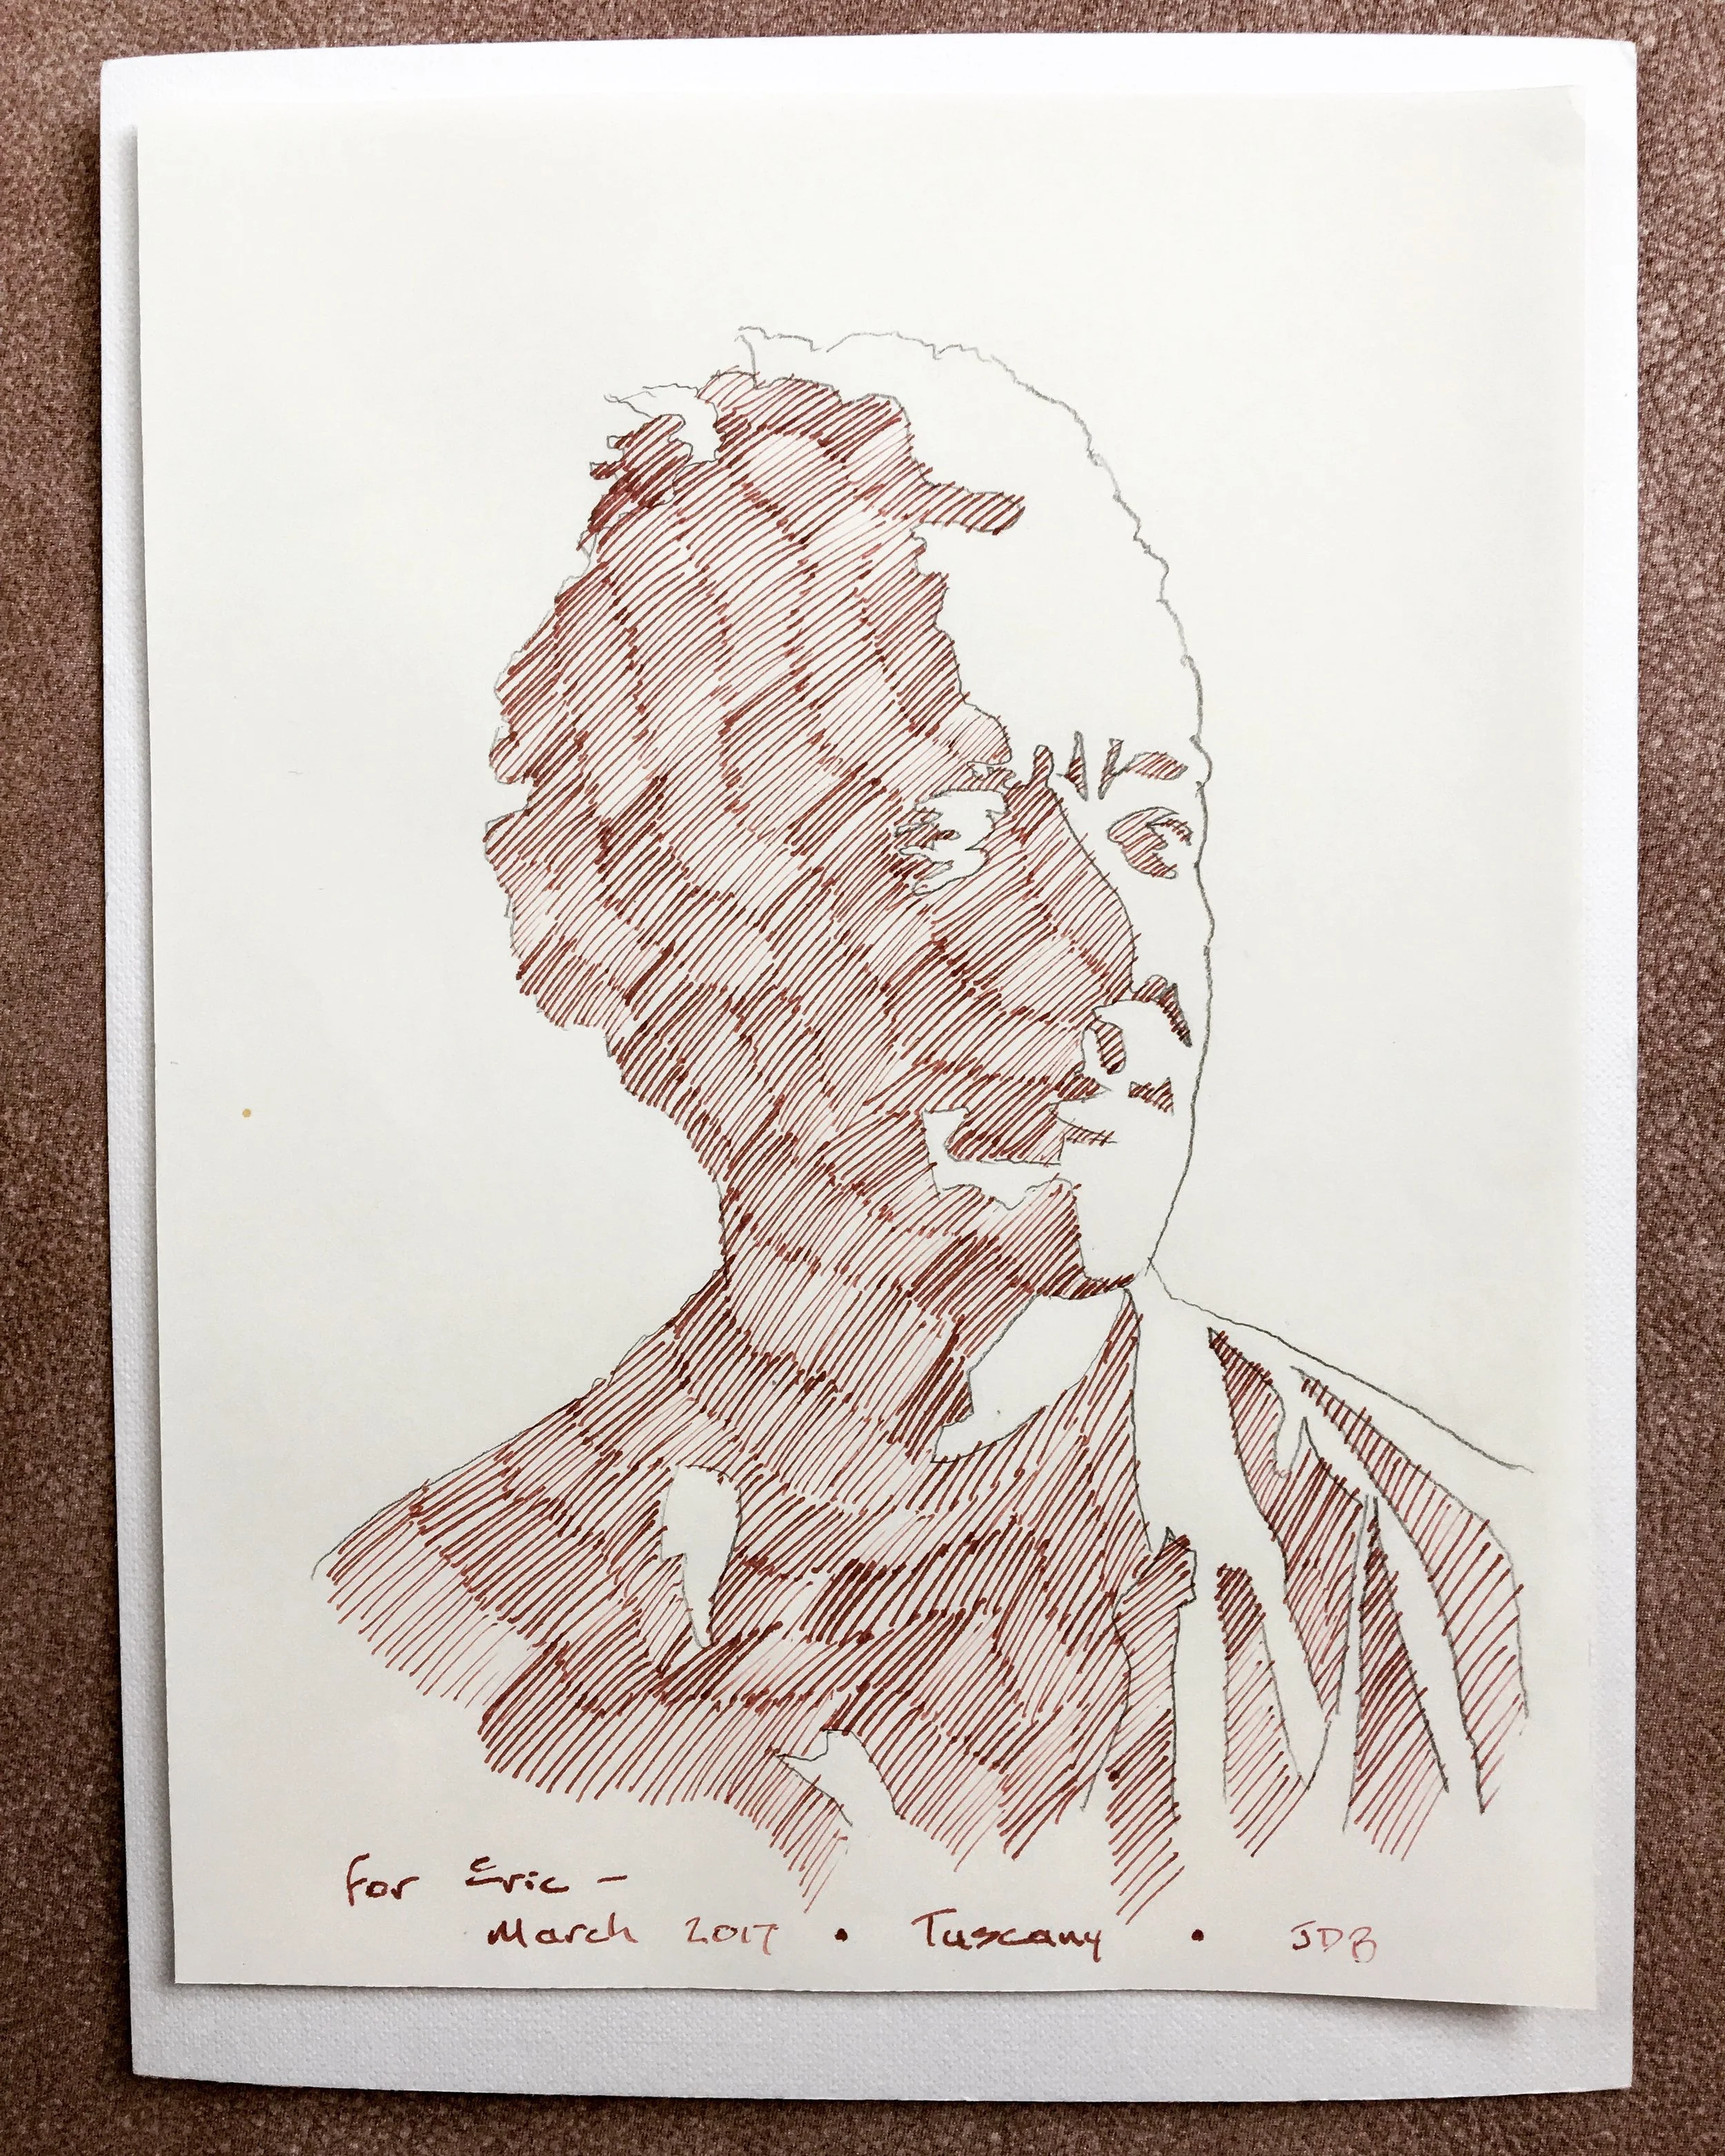 For Eric –
March 2017 • Tuscany • JDB